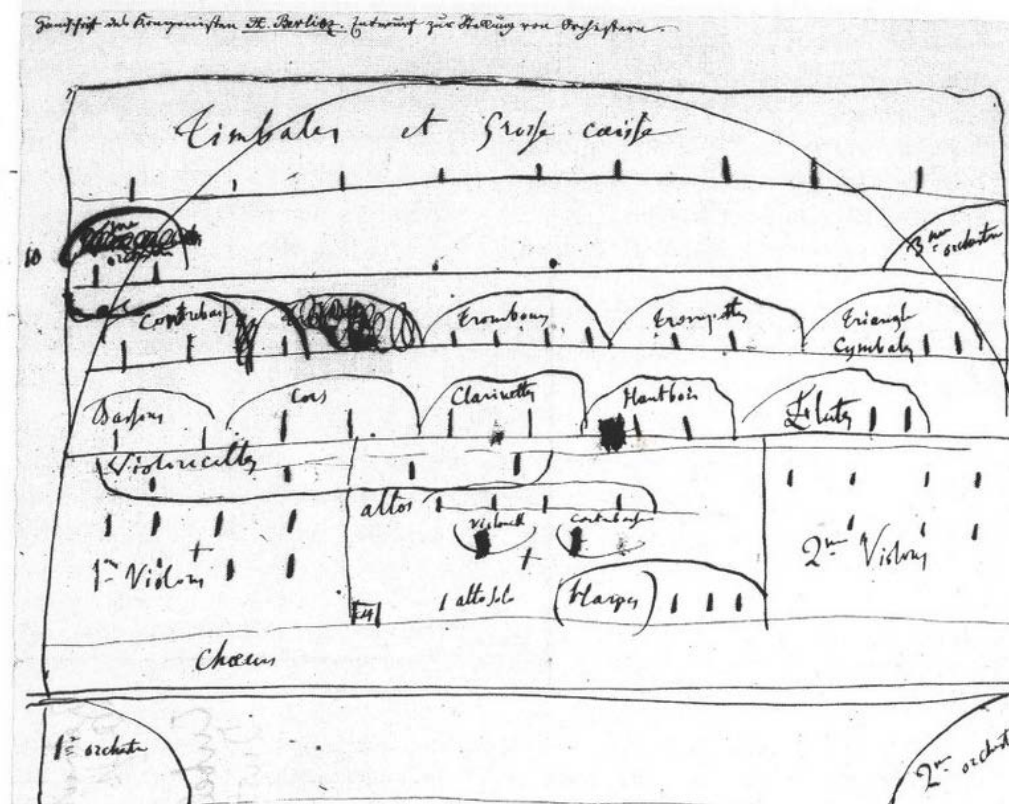 Handschrift des Komponisten H. Berlioz. Entwurf zur Stellung von Orchestern.
Timbales et Grosse caisse
me
orchestre
3me orchestre
10
Contrebasses
Trombones
Trompettes
Triangle
Cymbales
Bassons
Cors
Clarinettes
Hautbois
Flutes
Violoncelles
altos
Violoncelle
Contrebasse
1rs Violons
2mes Violons
1 alto solo
Harpes
Choeurs
1er orchestre
2me orchestre